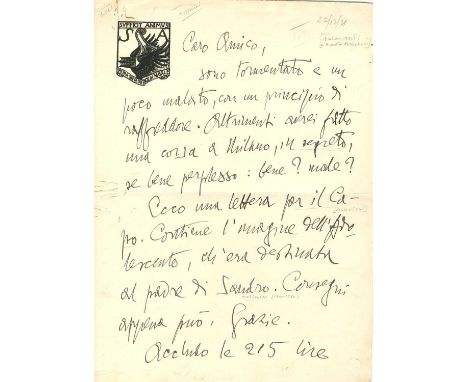 SVFFICIT ANIMVS
S A
22/12/31
Caro Amico,
sono tormentato e un
poco malato, con un principio di
raffreddore. Altrimenti avrei fatto
una corsa a Milano, in segreto,
se bene perplesso: bene? male?
Ecco una lettera per il Ca-
po. Contiene l'imagine dell'Ado-
lescente, ch'era destinata
al padre di Sandro. Consegni
appena può. Grazie.
Accludo le 215 lire